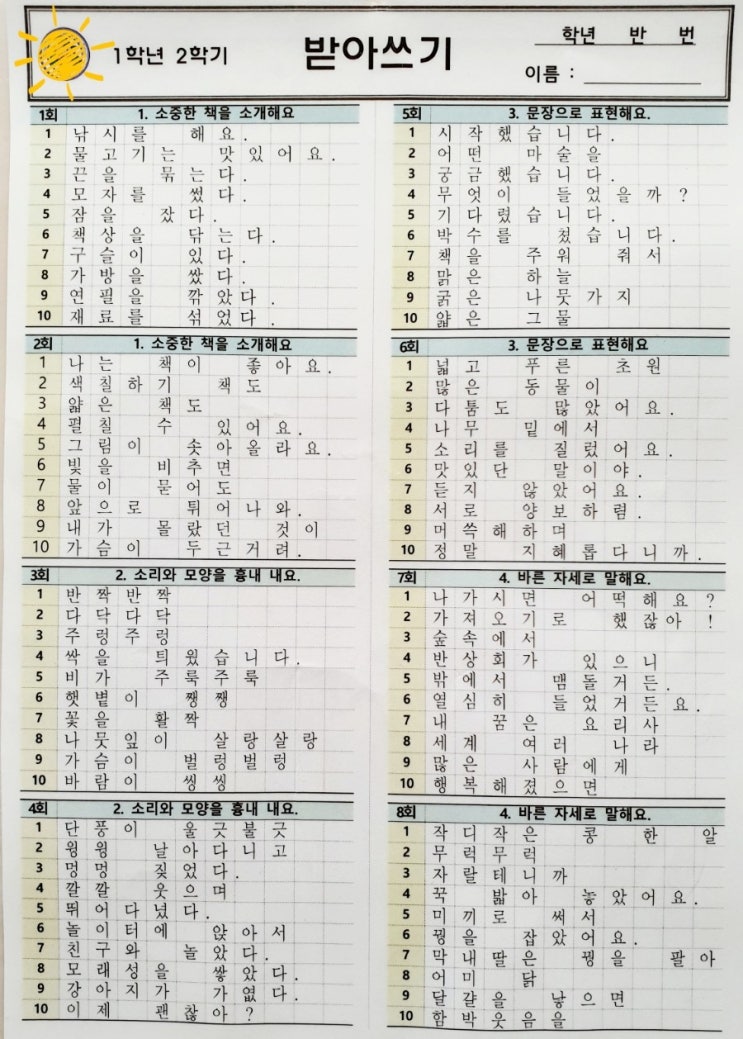 1학년 2학기
받아쓰기
학년 반 번
이름 :
1회 1. 소중한 책을 소개해요
1 낚시를 해요.
2 물고기는 맛있어요.
3 끈을 묶는다.
4 모자를 썼다.
5 잠을 잤다.
6 책상을 닦는다.
7 구슬이 있다.
8 가방을 쌌다.
9 연필을 깎았다.
10 재료를 섞었다.
2회 1. 소중한 책을 소개해요
1 나는 책이 좋아요.
2 색칠하기 책도
3 얇은 책도
4 펼칠 수 있어요.
5 그림이 솟아올라요.
6 빛을 비추면
7 물이 묻어도
8 앞으로 튀어나와.
9 내가 몰랐던 것이
10 가슴이 두근거려.
3회 2. 소리와 모양을 흉내 내요.
1 반짝반짝
2 다닥다닥
3 주렁주렁
4 싹을 틔웠습니다.
5 비가 주룩주룩
6 햇볕이 쨍쨍
7 꽃을 활짝
8 나뭇잎이 살랑살랑
9 가슴이 벌렁벌렁
10 바람이 씽씽
4회 2. 소리와 모양을 흉내 내요.
1 단풍이 울긋불긋
2 윙윙 날아다니고
3 멍멍 짖었다.
4 깔깔 웃으며
5 뛰어다녔다.
6 놀이터에 앉아서
7 친구와 놀았다.
8 모래성을 쌓았다.
9 강아지가 가엾다.
10 이제 괜찮아?
5회 3. 문장으로 표현해요.
1 시작했습니다.
2 어떤 마술을
3 궁금했습니다.
4 무엇이 들었을까?
5 기다렸습니다.
6 박수를 쳤습니다.
7 책을 주워 줘서
8 맑은 하늘
9 굵은 나뭇가지
10 얇은 그물
6회 3. 문장으로 표현해요.
1 넓고 푸른 초원
2 많은 동물이
3 다툼도 많았어요.
4 나무 밑에서
5 소리를 질렀어요.
6 맛있단 말이야.
7 듣지 않았어요.
8 서로 양보하렴.
9 머쓱해하며
10 정말 지혜롭다니까.
7회 4. 바른 자세로 말해요.
1 나가시면 어떡해요?
2 가져오기로 했잖아!
3 숲속에서
4 반상회가 있으니
5 밖에서 맴돌거든.
6 열심히 들었거든요.
7 내 꿈은 요리사
8 세계 여러 나라
9 많은 사람에게
10 행복해졌으면
8회 4. 바른 자세로 말해요.
1 작디작은 콩 한 알
2 무럭무럭
3 자랄테니까
4 꾹 밟아 놓았어요.
5 미끼로 써서
6 꿩을 잡았어요.
7 막내딸은 꿩을 팔아
8 어미 닭
9 달걀을 낳으면
10 함박웃음을